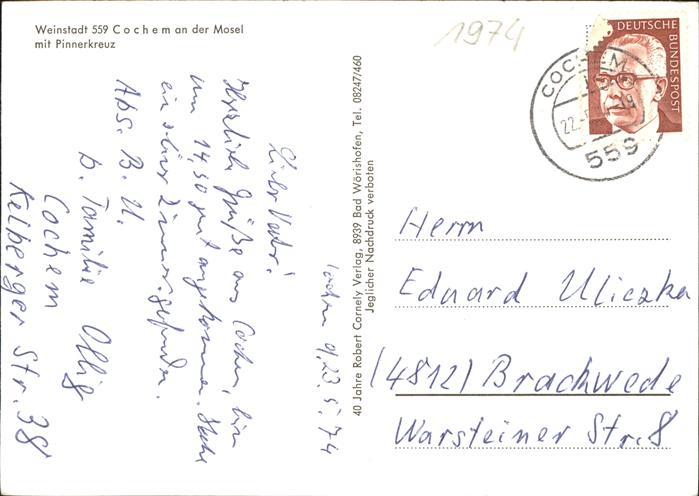 Weinstadt 559 Cochem an der Mosel
mit Pinnerkreuz
1974
DEUTSCHE
BUNDESPOST
COCHEM
22.
559
Cochem d. 23. 5. 74
Lieber Vater!
Herzliche Grüße aus Cochem, bin
um 14,30 gut angekommen. Habe
ein schönes Zimmer gefunden.
Abs. B. U.
b. Familie Ollig
Cochem
Kelberger Str. 38
40 Jahre Robert Cornely Verlag, 8939 Bad Wörishofen, Tel. 08247/460
Jeglicher Nachdruck verboten
Herrn
Eduard Uliczka
(4812) Brackwede
Warsteiner Str. 8